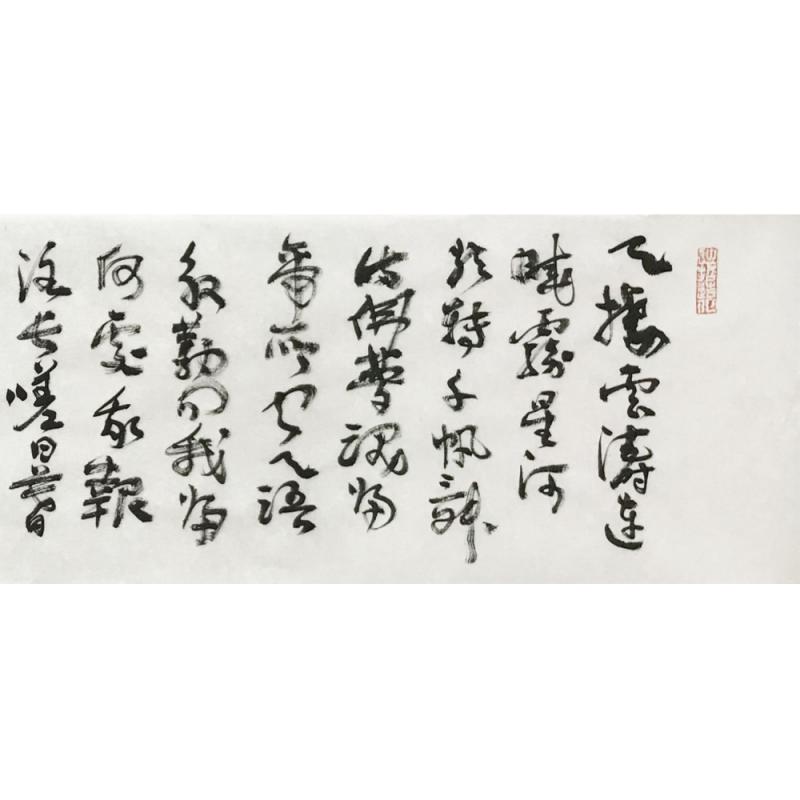 天接雲濤連
曉霧星河
欲轉千帆舞
彷彿夢魂歸
帝所聞天語
殷勤問我歸
何處我報
路長嗟日暮